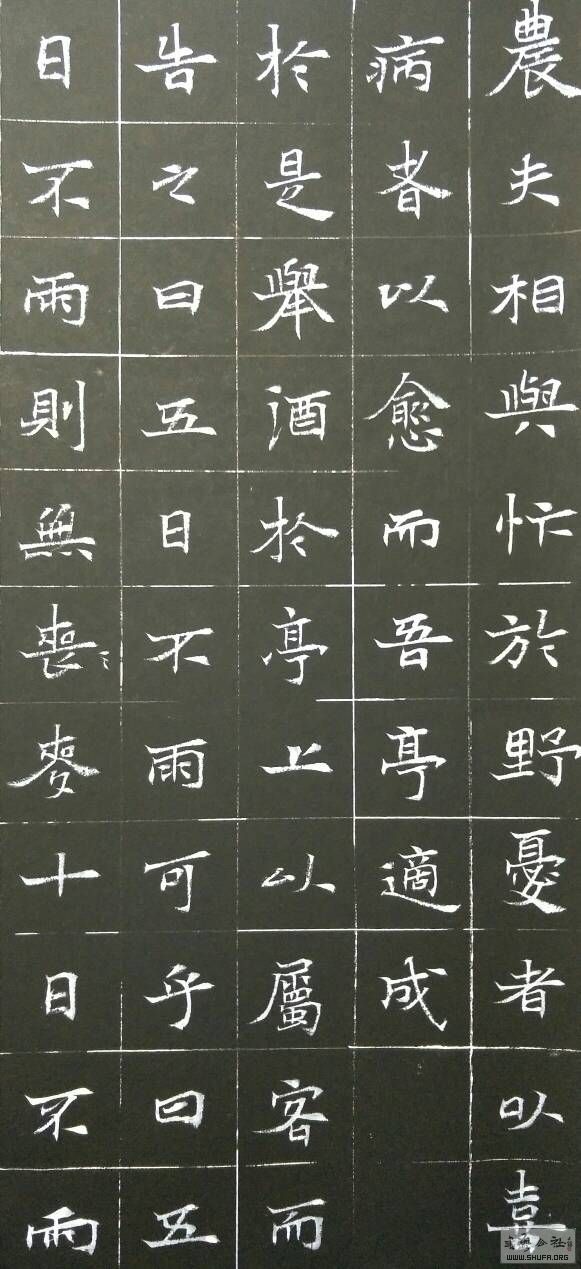 農夫相與忭於野憂者以喜
病者以愈而吾亭適成
於是舉酒於亭上以屬客而
告之曰五日不雨可乎曰五
日不雨則無麥十日不雨
WWW.SHUFA.ORG